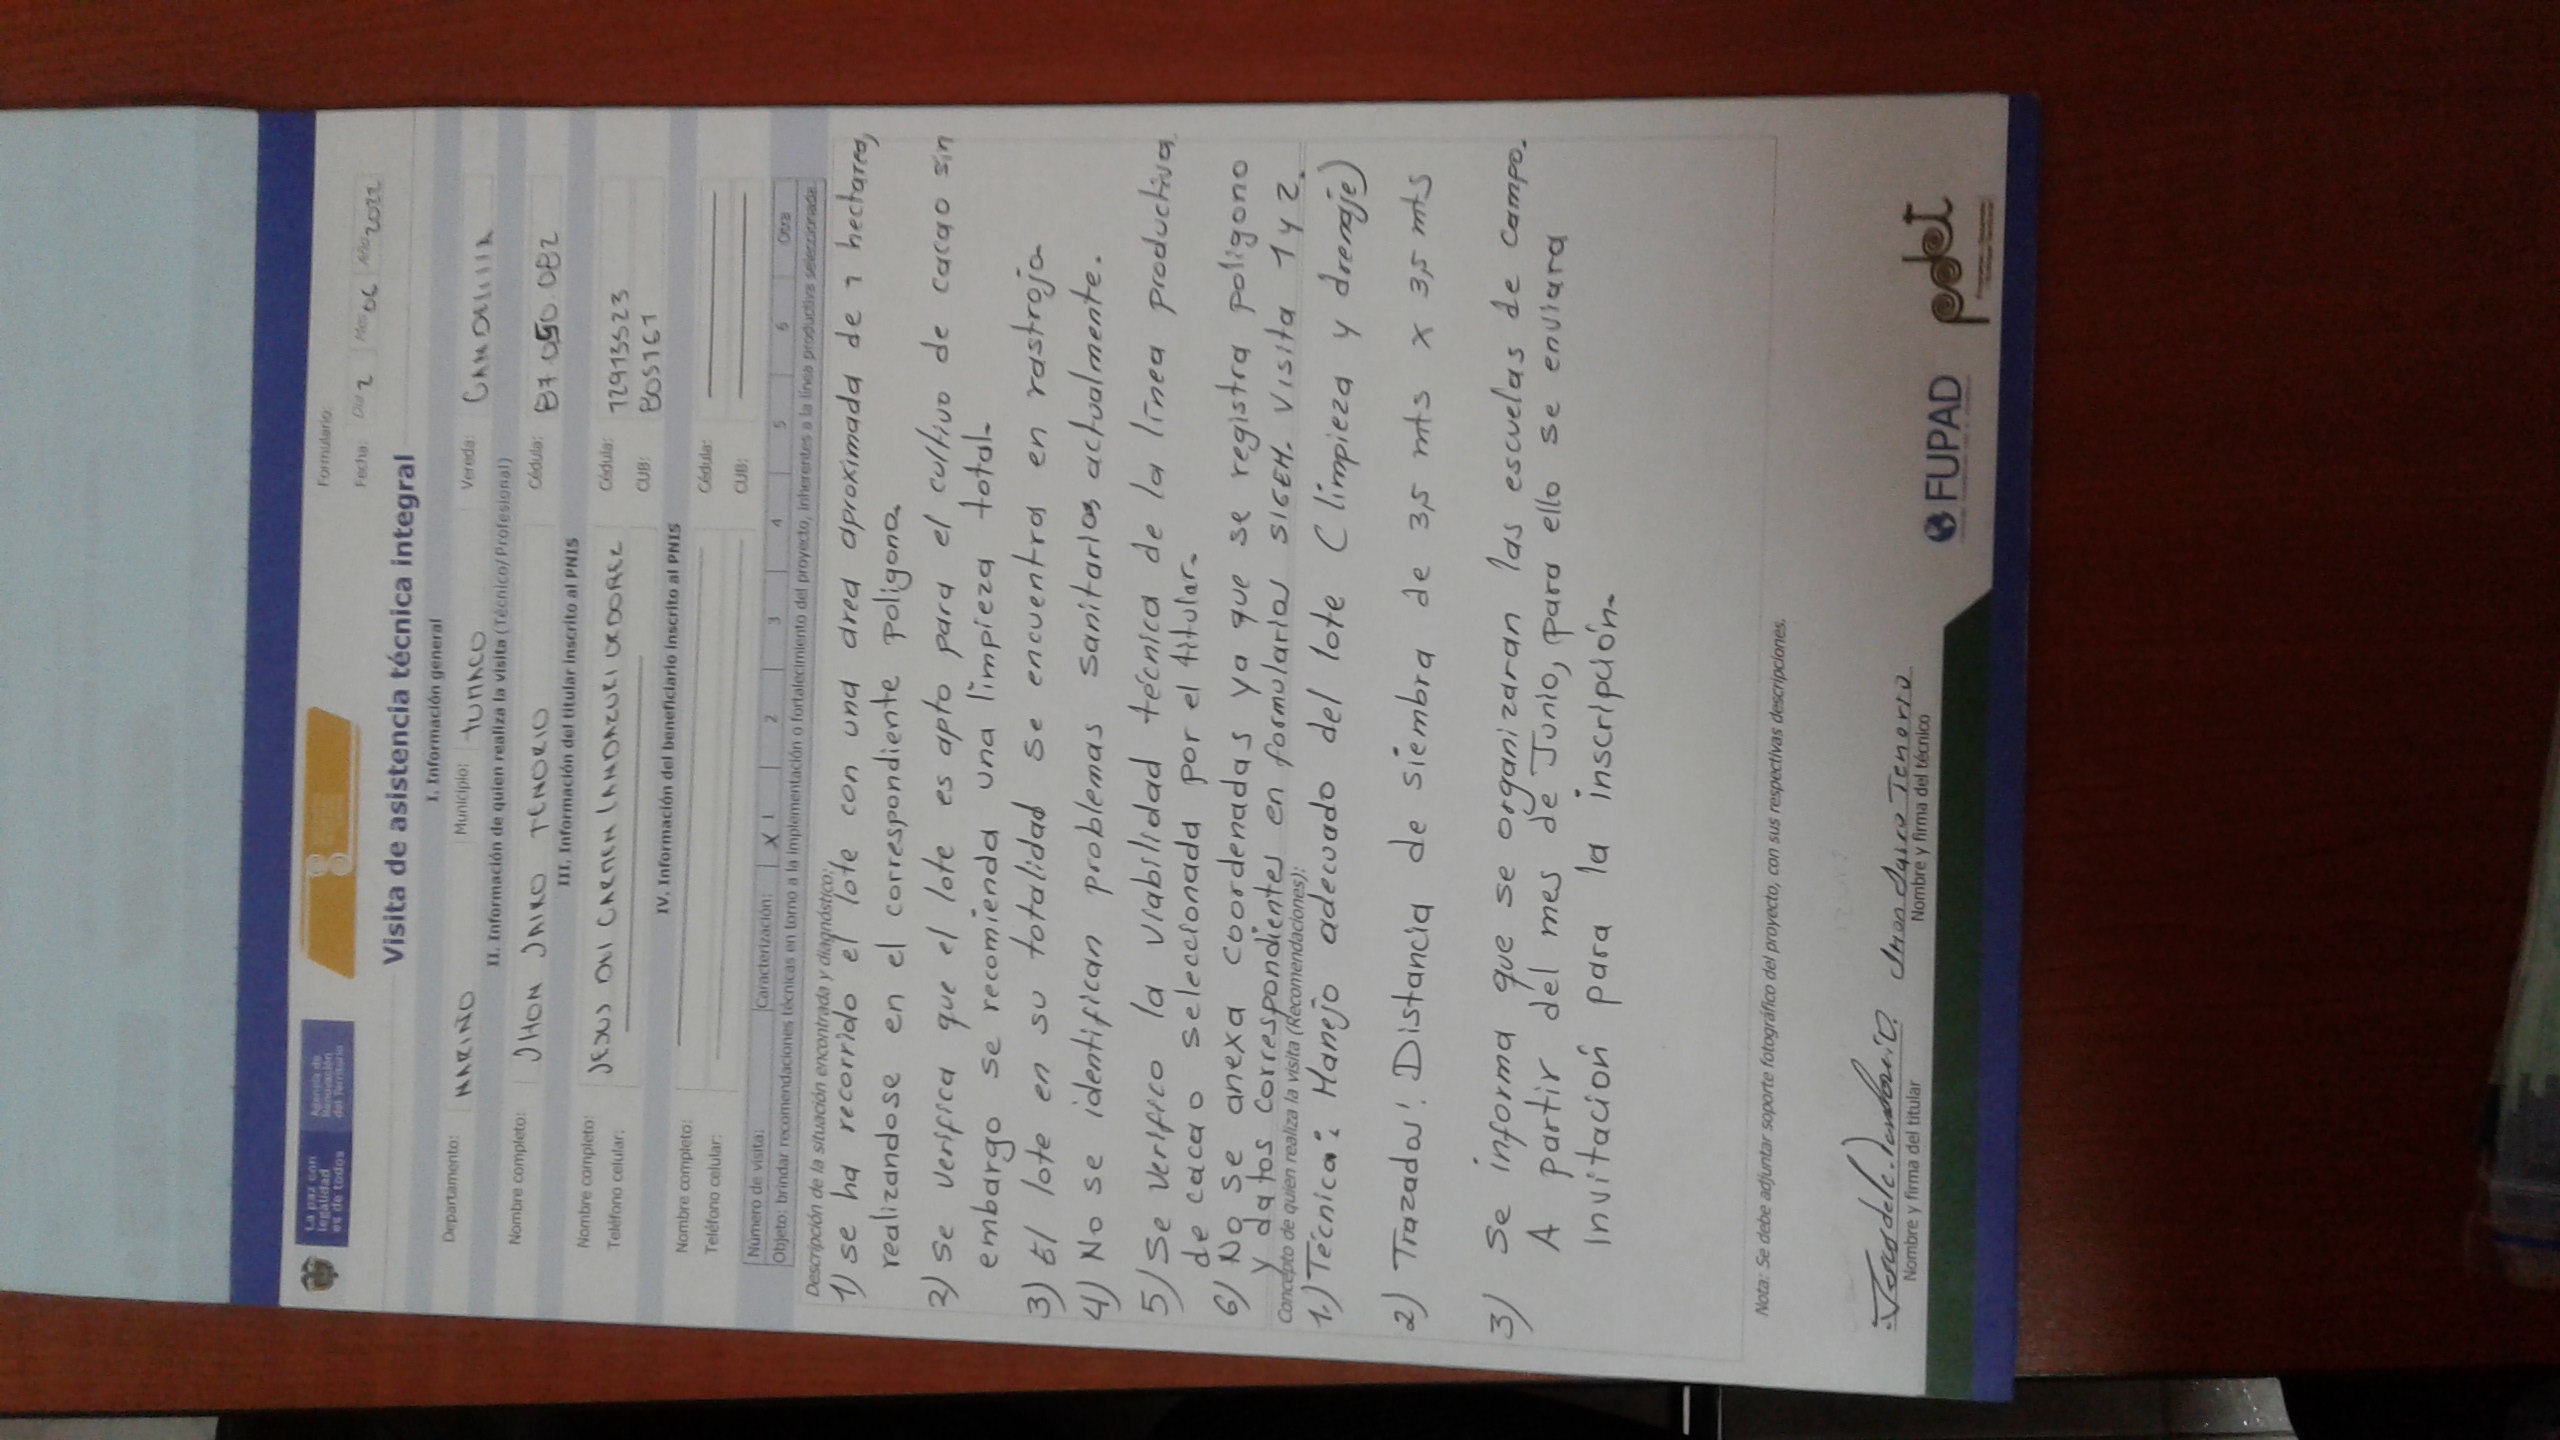 La paz con
legalidad
es de todos
Agencia de
Renovación
del Territorio
Formulario:
Fecha: Día 2 Mes 06 Año 2022
Visita de asistencia técnica integral
I. Información general
Departamento: NARIÑO Municipio: TUMACO Vereda:
II. Información de quien realiza la visita (Técnico/Profesional)
Nombre completo: JHON JAIRO TENORIO Cédula: 87.050.082
III. Información del titular inscrito al PNIS
Nombre completo: JESUS DEL CARMEN LANDAZURI Cédula: 12913523
Teléfono celular: CUB: 805161
IV. Información del beneficiario inscrito al PNIS
Nombre completo: Cédula:
Teléfono celular: CUB:
Número de visita: Caracterización: X 1 2 3 4 5 6 Otra
Objeto: brindar recomendaciones técnicas en torno a la implementación o fortalecimiento del proyecto, inherentes a la línea productiva seleccionada.
Descripción de la situación encontrada y diagnóstico:
1) se ha recorrido el lote con una area aproximada de 1 hectarea,
realizandose en el correspondiente poligono.
2) se verifica que el lote es apto para el cultivo de cacao sin
embargo se recomienda una limpieza total.
3) El lote en su totalidad se encuentra en rastrojo.
4) No se identifican problemas sanitarios actualmente.
5) Se verifico la viabilidad técnica de la línea productiva
de cacao seleccionada por el titular.
6) No se anexa coordenadas ya que se registra poligono
y datos correspondientes en formulario SIGEM. Visita 1 y 2.
Concepto de quien realiza la visita (Recomendaciones):
1.) Técnica: Manejo adecuado del lote (limpieza y drenaje)
2) Trazados! Distancia de siembra de 3,5 mts x 3,5 mts
3) Se informa que se organizaran las escuelas de campo.
A partir del mes de Junio, para ello se enviara
Invitación para la inscripción.
Nota: Se debe adjuntar soporte fotográfico del proyecto, con sus respectivas descripciones.
Jhon Jairo Tenorio
Nombre y firma del titular Nombre y firma del técnico
FUPAD
pdet